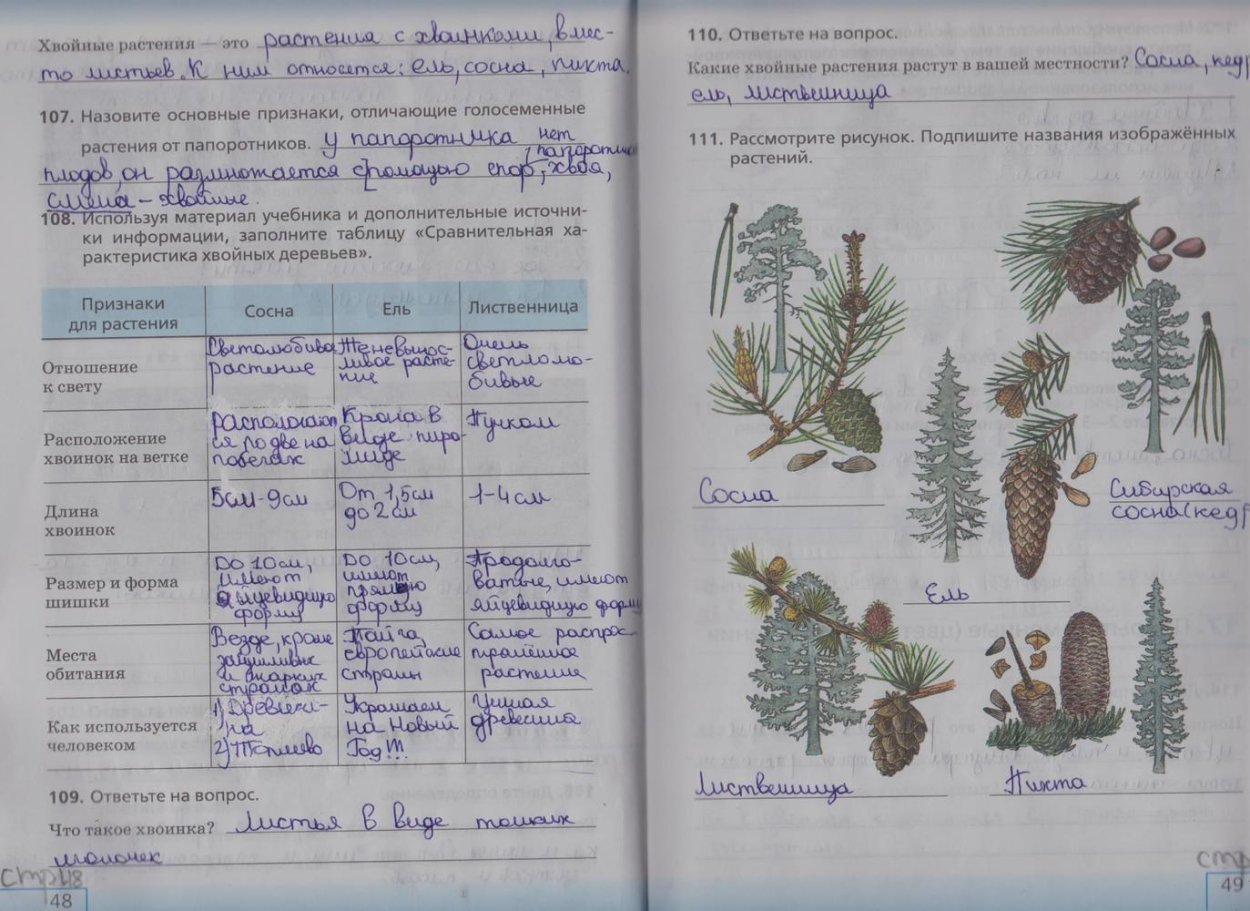 Хвойные растения — это растения с хвоинками, вмес-
то листьев. К ним относятся: ель, сосна, пихта.
107. Назовите основные признаки, отличающие голосеменные
растения от папоротников. у папоротника нет
плодов, он размножается с помощью спор, хвоя,
папоротник
смена - хвойные.
108. Используя материал учебника и дополнительные источни-
ки информации, заполните таблицу «Сравнительная ха-
рактеристика хвойных деревьев».
Признаки
для растения
Сосна
Ель
Лиственница
Отношение
к свету
Светолюбивое
растение
Теневынос-
ливое расте-
ние
Очень
светлолю-
бивые
Расположение
хвоинок на ветке
располагают
ся по две на
побегах
Крона в
виде пиро-
миде
Пучком
Длина
хвоинок
5см-9см
От 1,5см
до 2 см
1-4 см
Размер и форма
шишки
До 10см,
имеют
яйцевидную
форму
До 10см,
имеют
прямую
форму
Продолго-
ватые, имеют
яйцевидную форму
Места
обитания
Везде, кроме
засушливых
и жарких
странах
Тайга,
европейские
страны
Самое распрос-
транённое
растение
Как используется
человеком
1) Древеси-
на
2) Топливо
Украшаем
на Новый
Год!!!
Ценная
древесина
109. Ответьте на вопрос.
Что такое хвоинка? Листья в виде тонких
иголочек
стр48
48
110. Ответьте на вопрос.
Какие хвойные растения растут в вашей местности? Сосна, кедр
ель, лиственница
111. Рассмотрите рисунок. Подпишите названия изображённых
растений.
Сосна
Сибирская
сосна(кедр
Ель
Лиственница
Пихта
стр
49